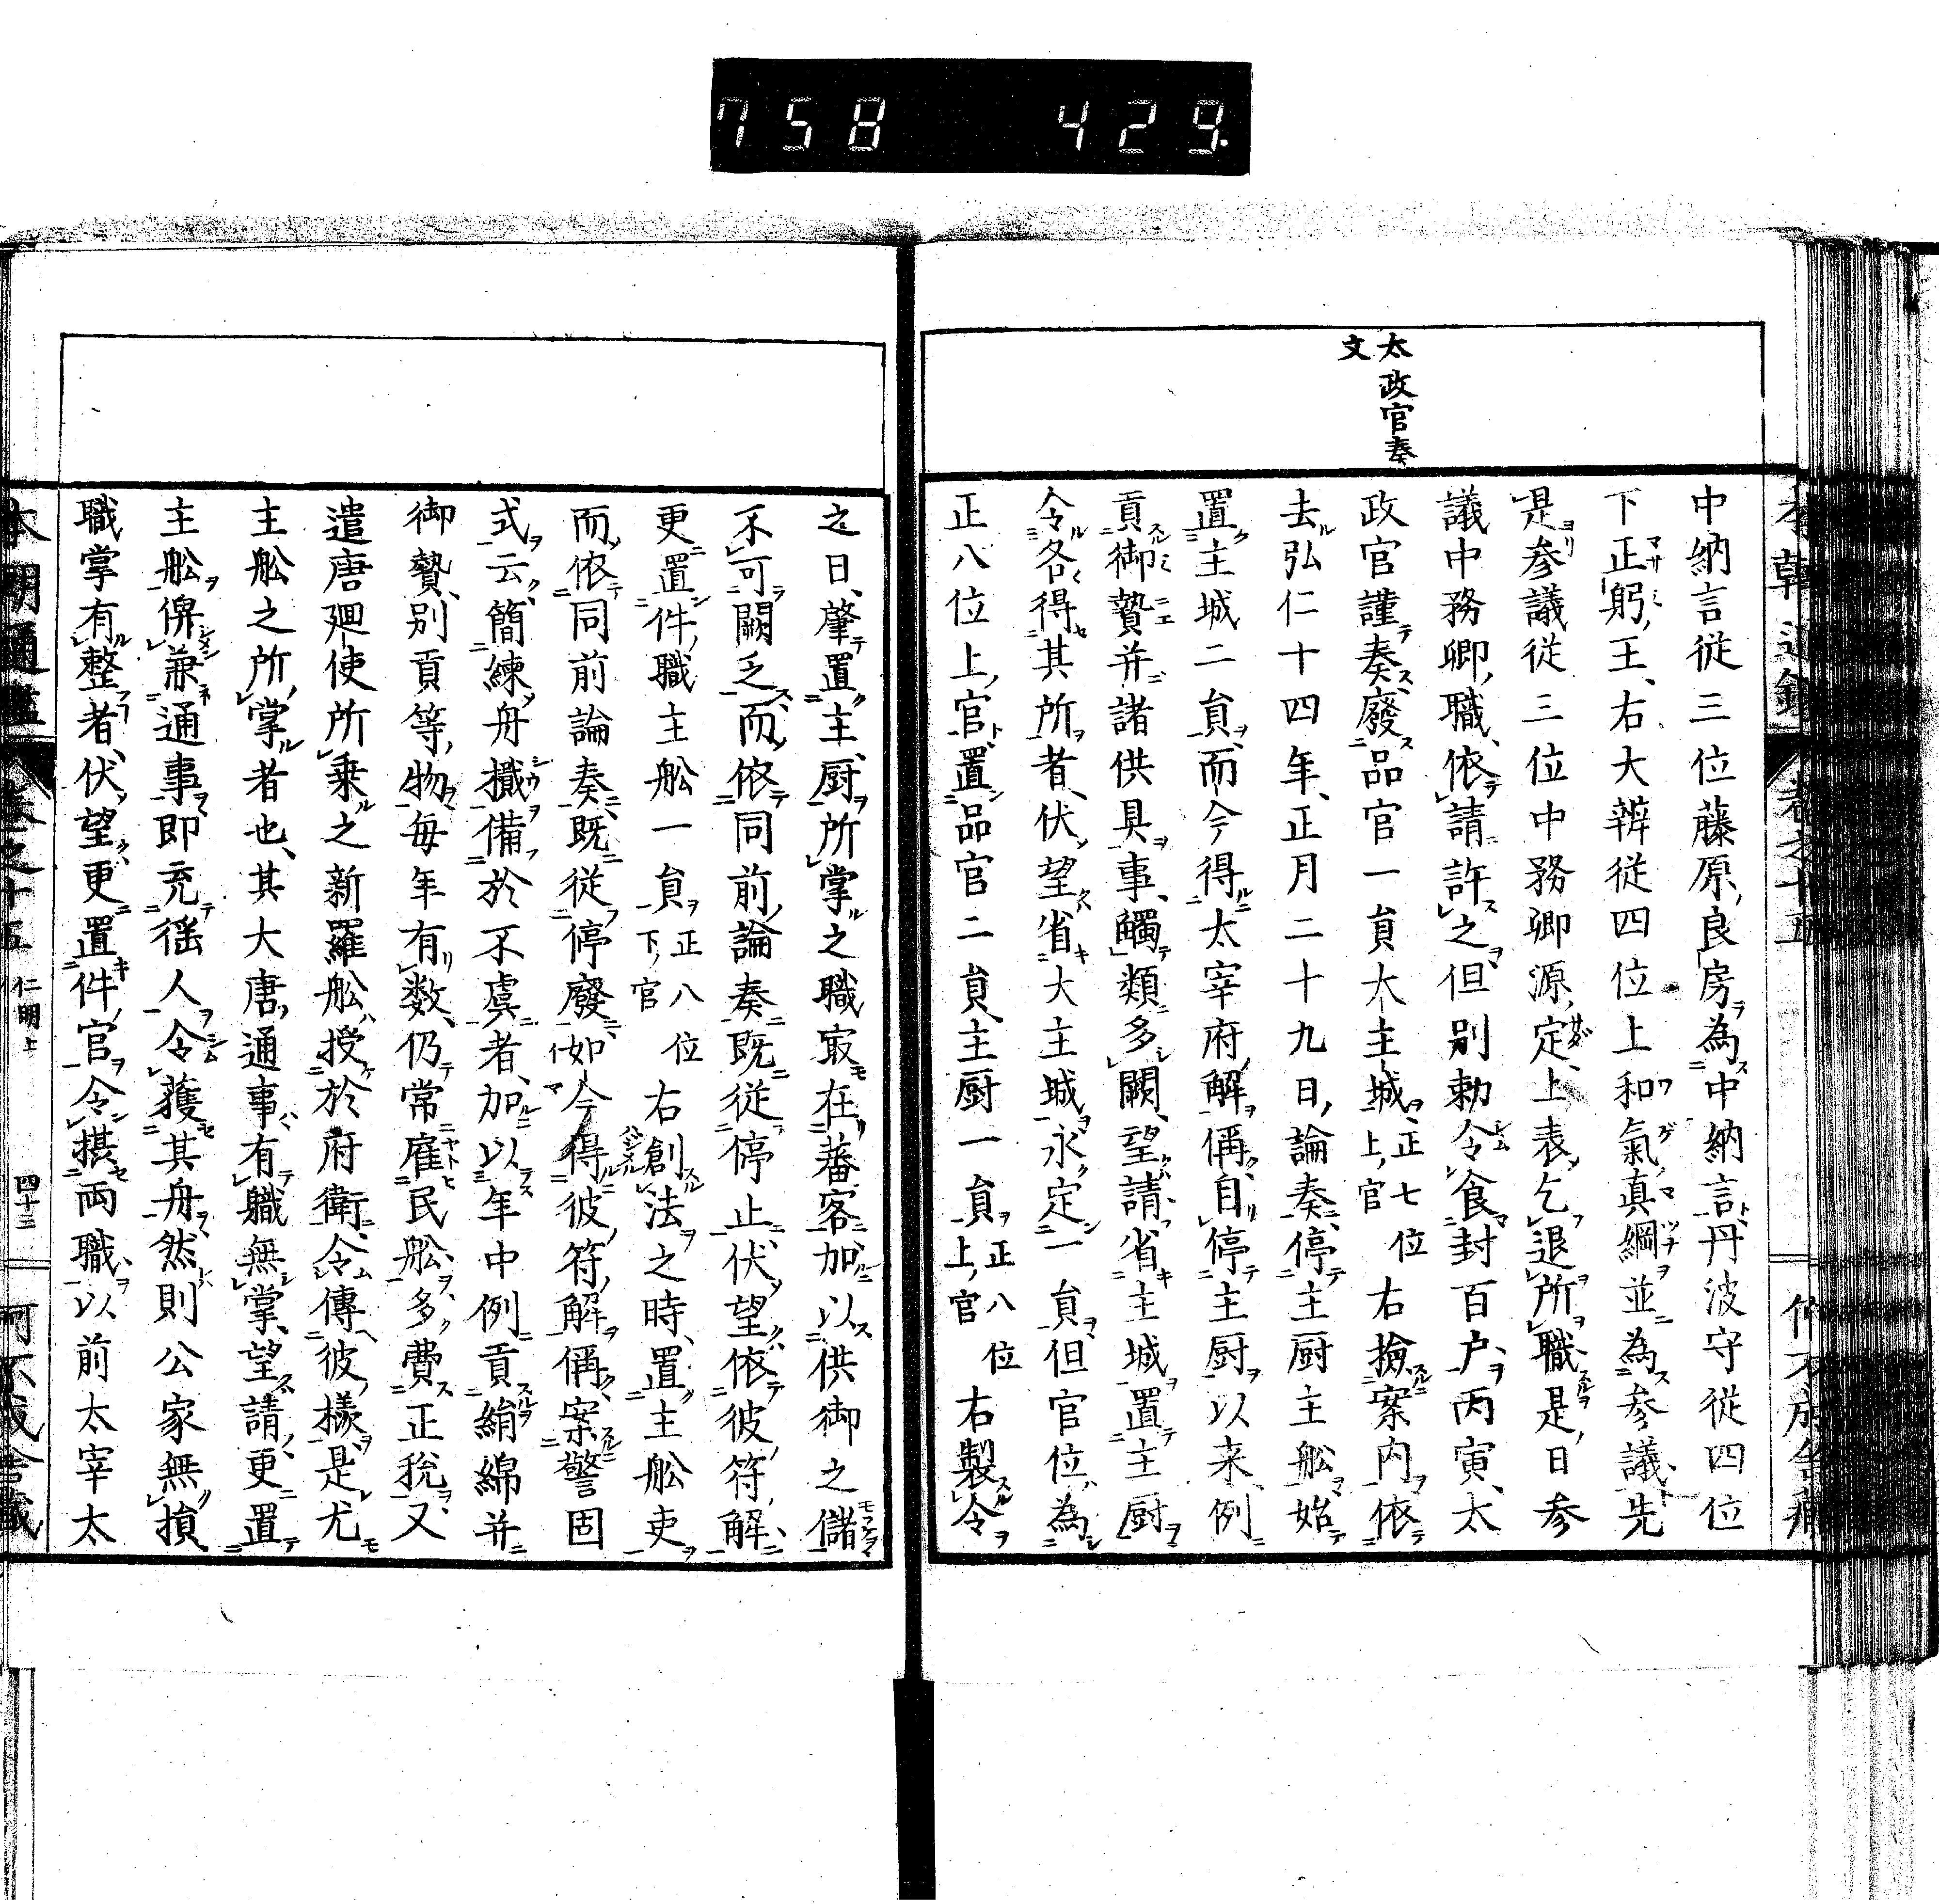 758 429.
太政官奏
文
中納言従三位藤原良房為中納言丹波守従四位
下正躬王右大辨従四位上和氣真綱並為参議先
是参議従三位中務卿源定上表乞退所職是日参
議中務卿職依請許之但別勅令食封百户丙寅太
政官謹奏廢品官一負大主城正七位上官右撿案内依
去弘仁十四年正月二十九日論奏停主厨主舩始
置主城二負而今得太宰府解偁自停主厨以来例
貢御贄并諸供具事觸類多闕望請省主城置主厨
令各得其所者伏望省大主城永定一負但官位為
正八位上官置品官二負主厨一負正八位上官右製令
之日肇置主厨所掌之職㝡在蕃客加以供御之儲
不可闕乏而依同前論奏既従停止伏望依彼符解
更置件職主舩一負正八位下官右創法之時置主舩吏
而依同前論奏既従停廢如今得彼符解偁案警固
式云簡練舟檝備於不虞者加以年中例貢絹綿并
御贄別貢等物毎年有数仍常雇民舩多費正税又
遣唐廻使所乗之新羅舩授於府衛令傳彼様是尤
主舩之所掌者也其大唐通事有職無掌望請更置
主舩俾兼通事即充徭人令獲其舟然則公家無損
職掌有整者伏望更置件官令摂兩職以前太宰太
本朝通鑑 卷之十五 仁明上 四十三